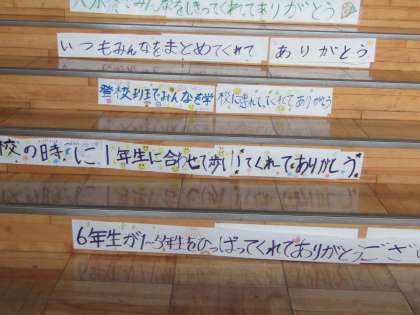 みんなをしきってくれてありがとう
いつもみんなをまとめてくれて ありがとう
登校班でみんなを学校に連れていってくれてありがとう
校の時に1年生に合わせて歩いてくれてありがとう
6年生が1〜5年生をひっぱってくれてありがとうござい